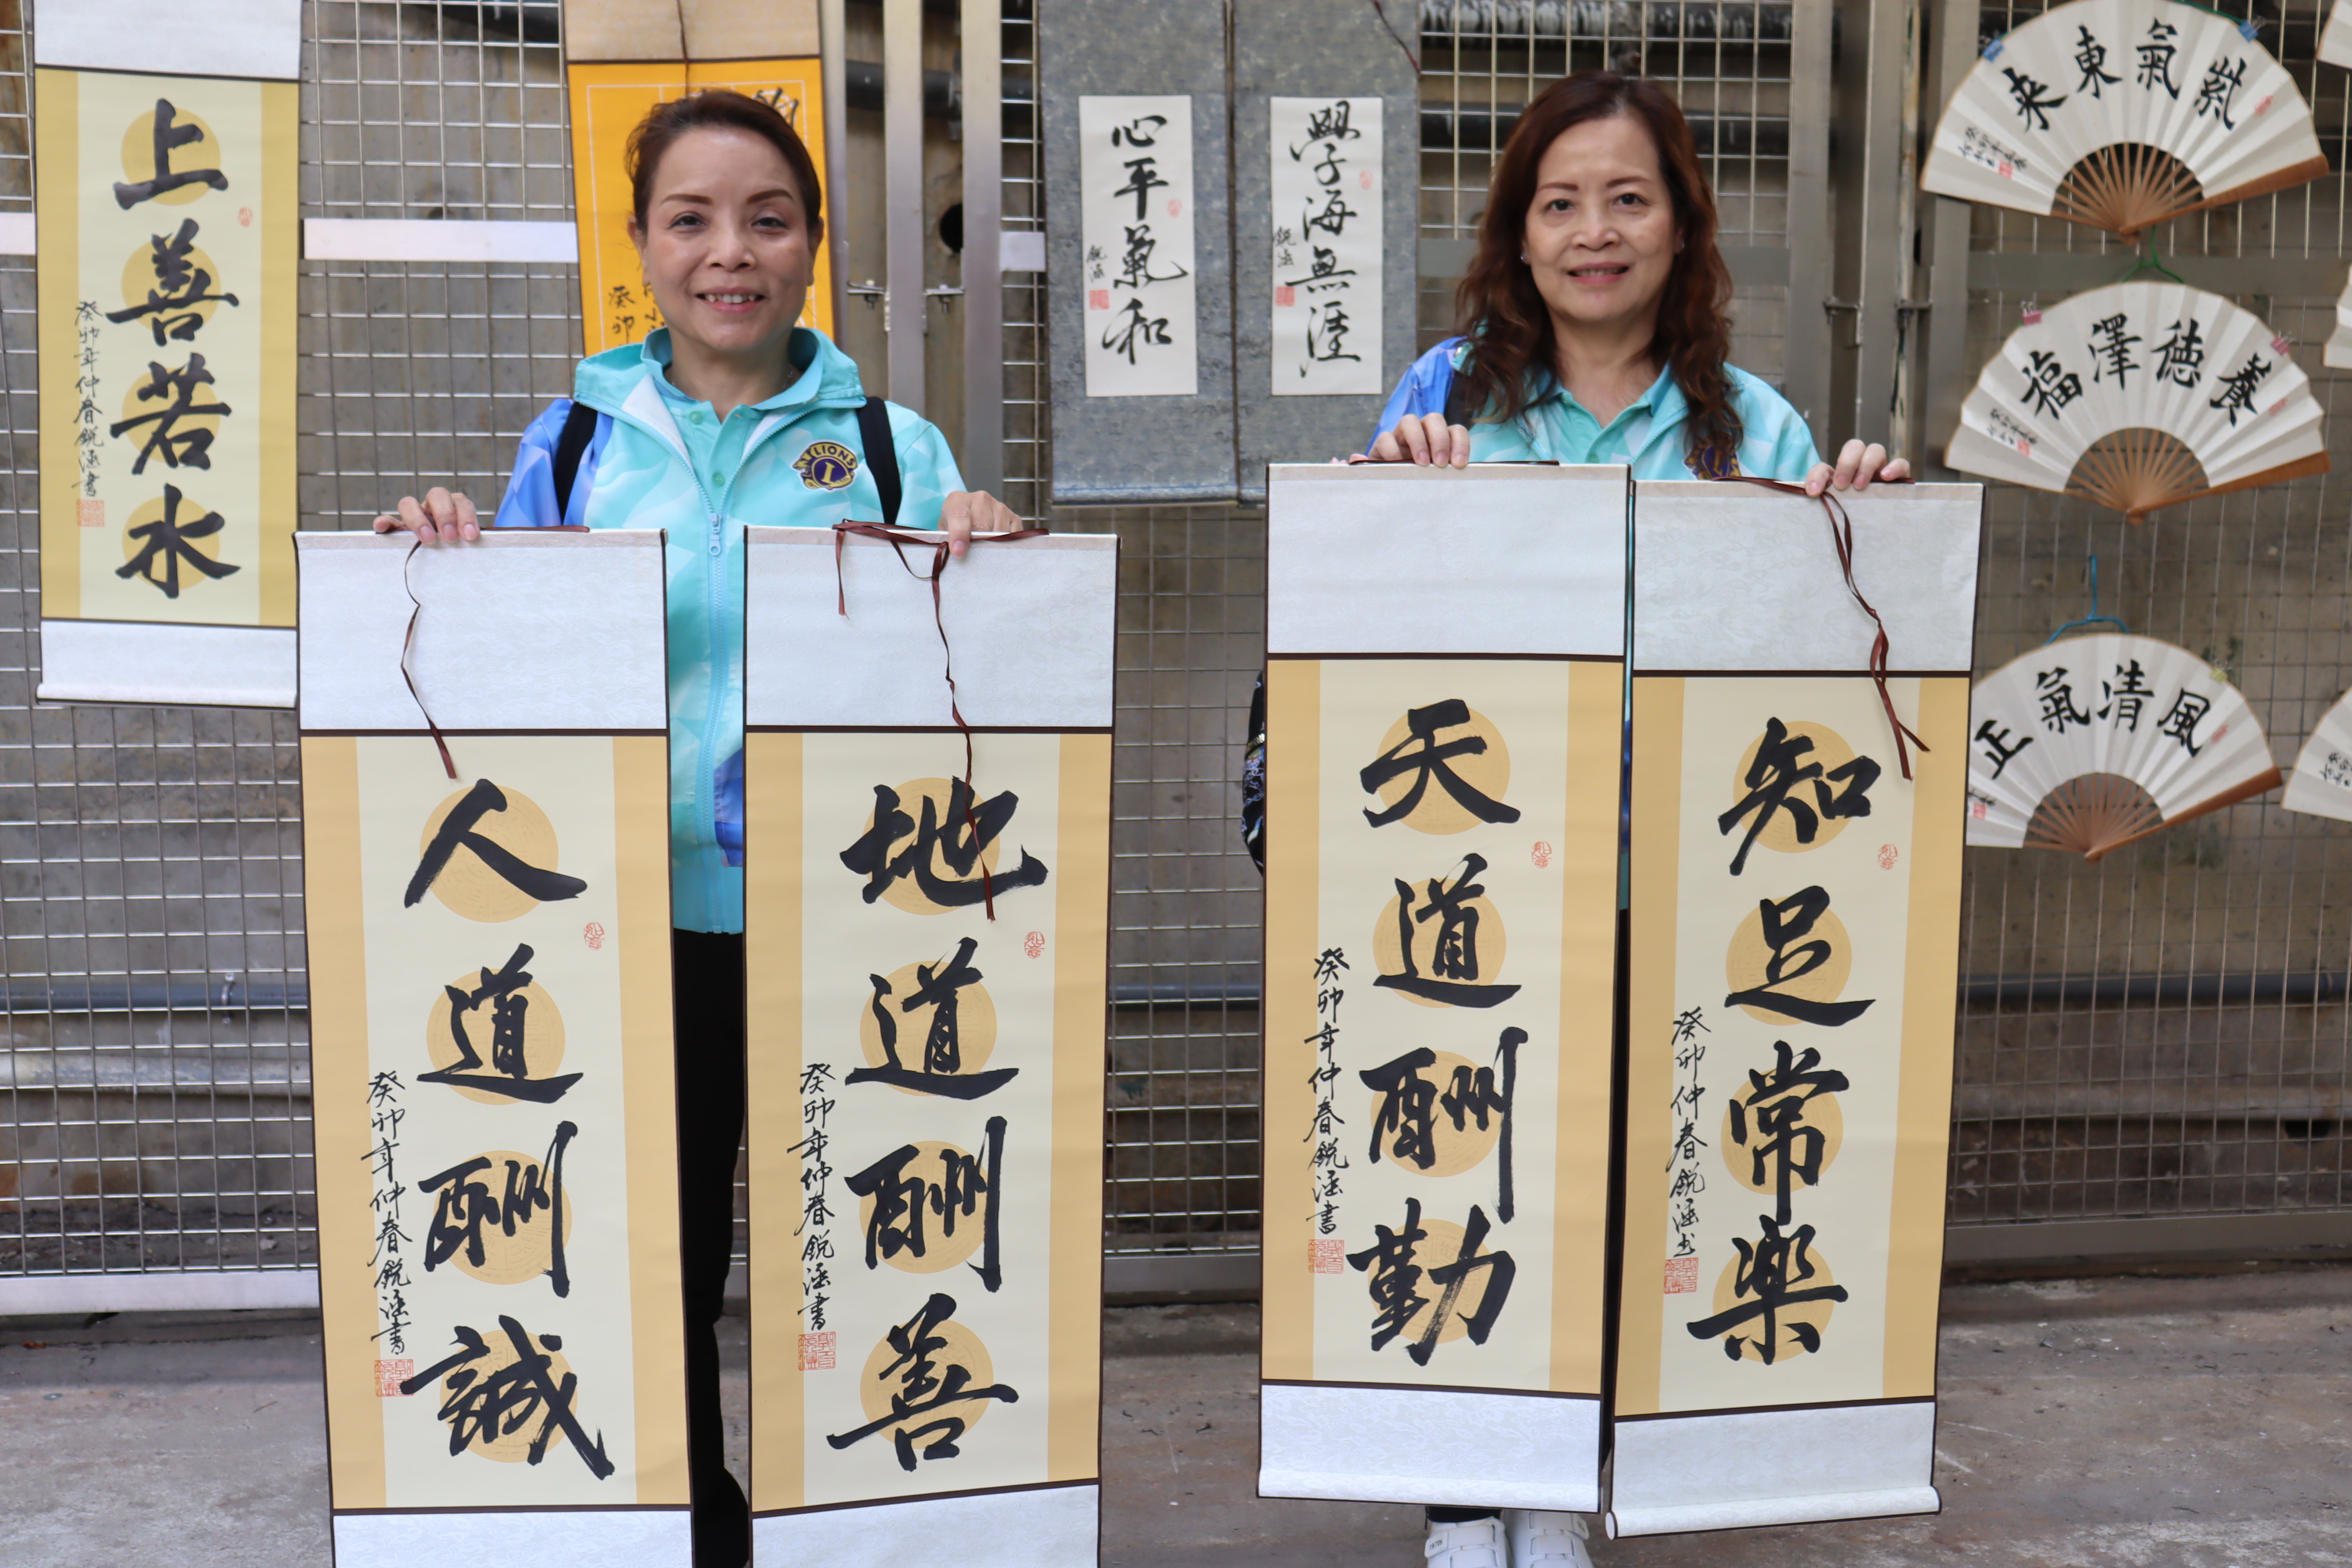 上善若水
癸卯年仲春銳涵書
癸卯
心平氣和
銳涵
學海無涯
銳涵
紫氣東来
養德澤福
風清氣正
LIONS
L
人道酬誠
癸卯年仲春銳涵書
地道酬善
癸卯年仲春銳涵書
天道酬勤
癸卯年仲春銳涵書
知足常樂
癸卯仲春銳涵书